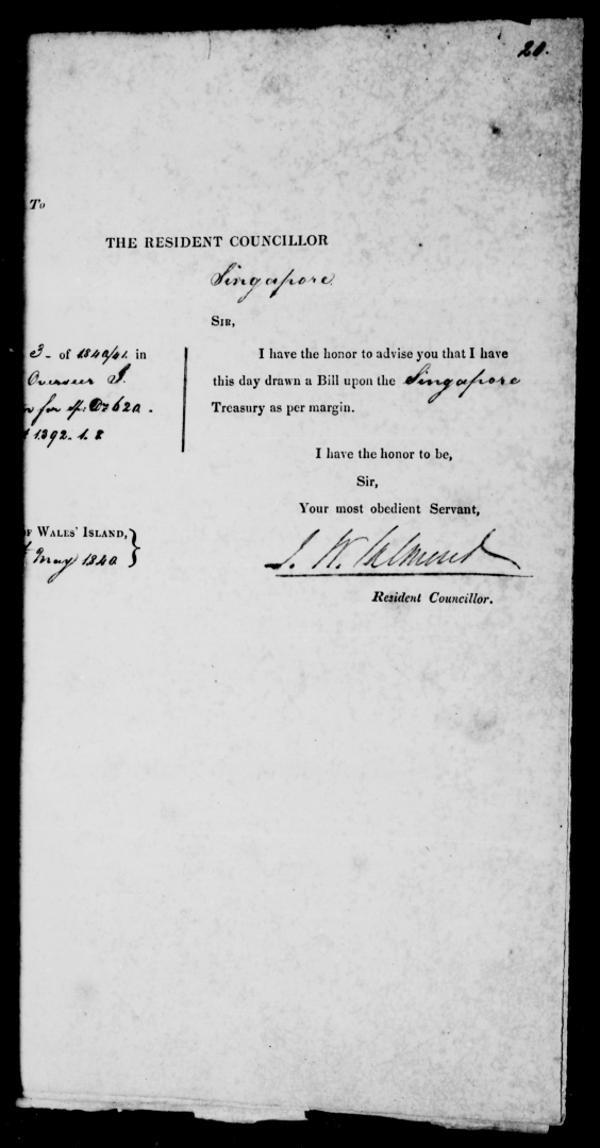 20.
To
THE RESIDENT COUNCILLOR
Singapore
SIR,
3 - of 1840/41. in
Overseer J.
for
620.
1392. 1. 8
I have the honor to advise you that I have
this day drawn a Bill upon the Singapore
Treasury as per margin.
I have the honor to be,
Sir,
Your most obedient Servant,
OF WALES' ISLAND,}
May 1840
J. W. Salmond
Resident Councillor.